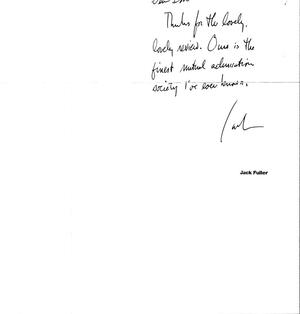 Thanks for the lovely,
lovely review. Ours is the
finest mutual admiration
society I've ever known.
Jack
Jack Fuller